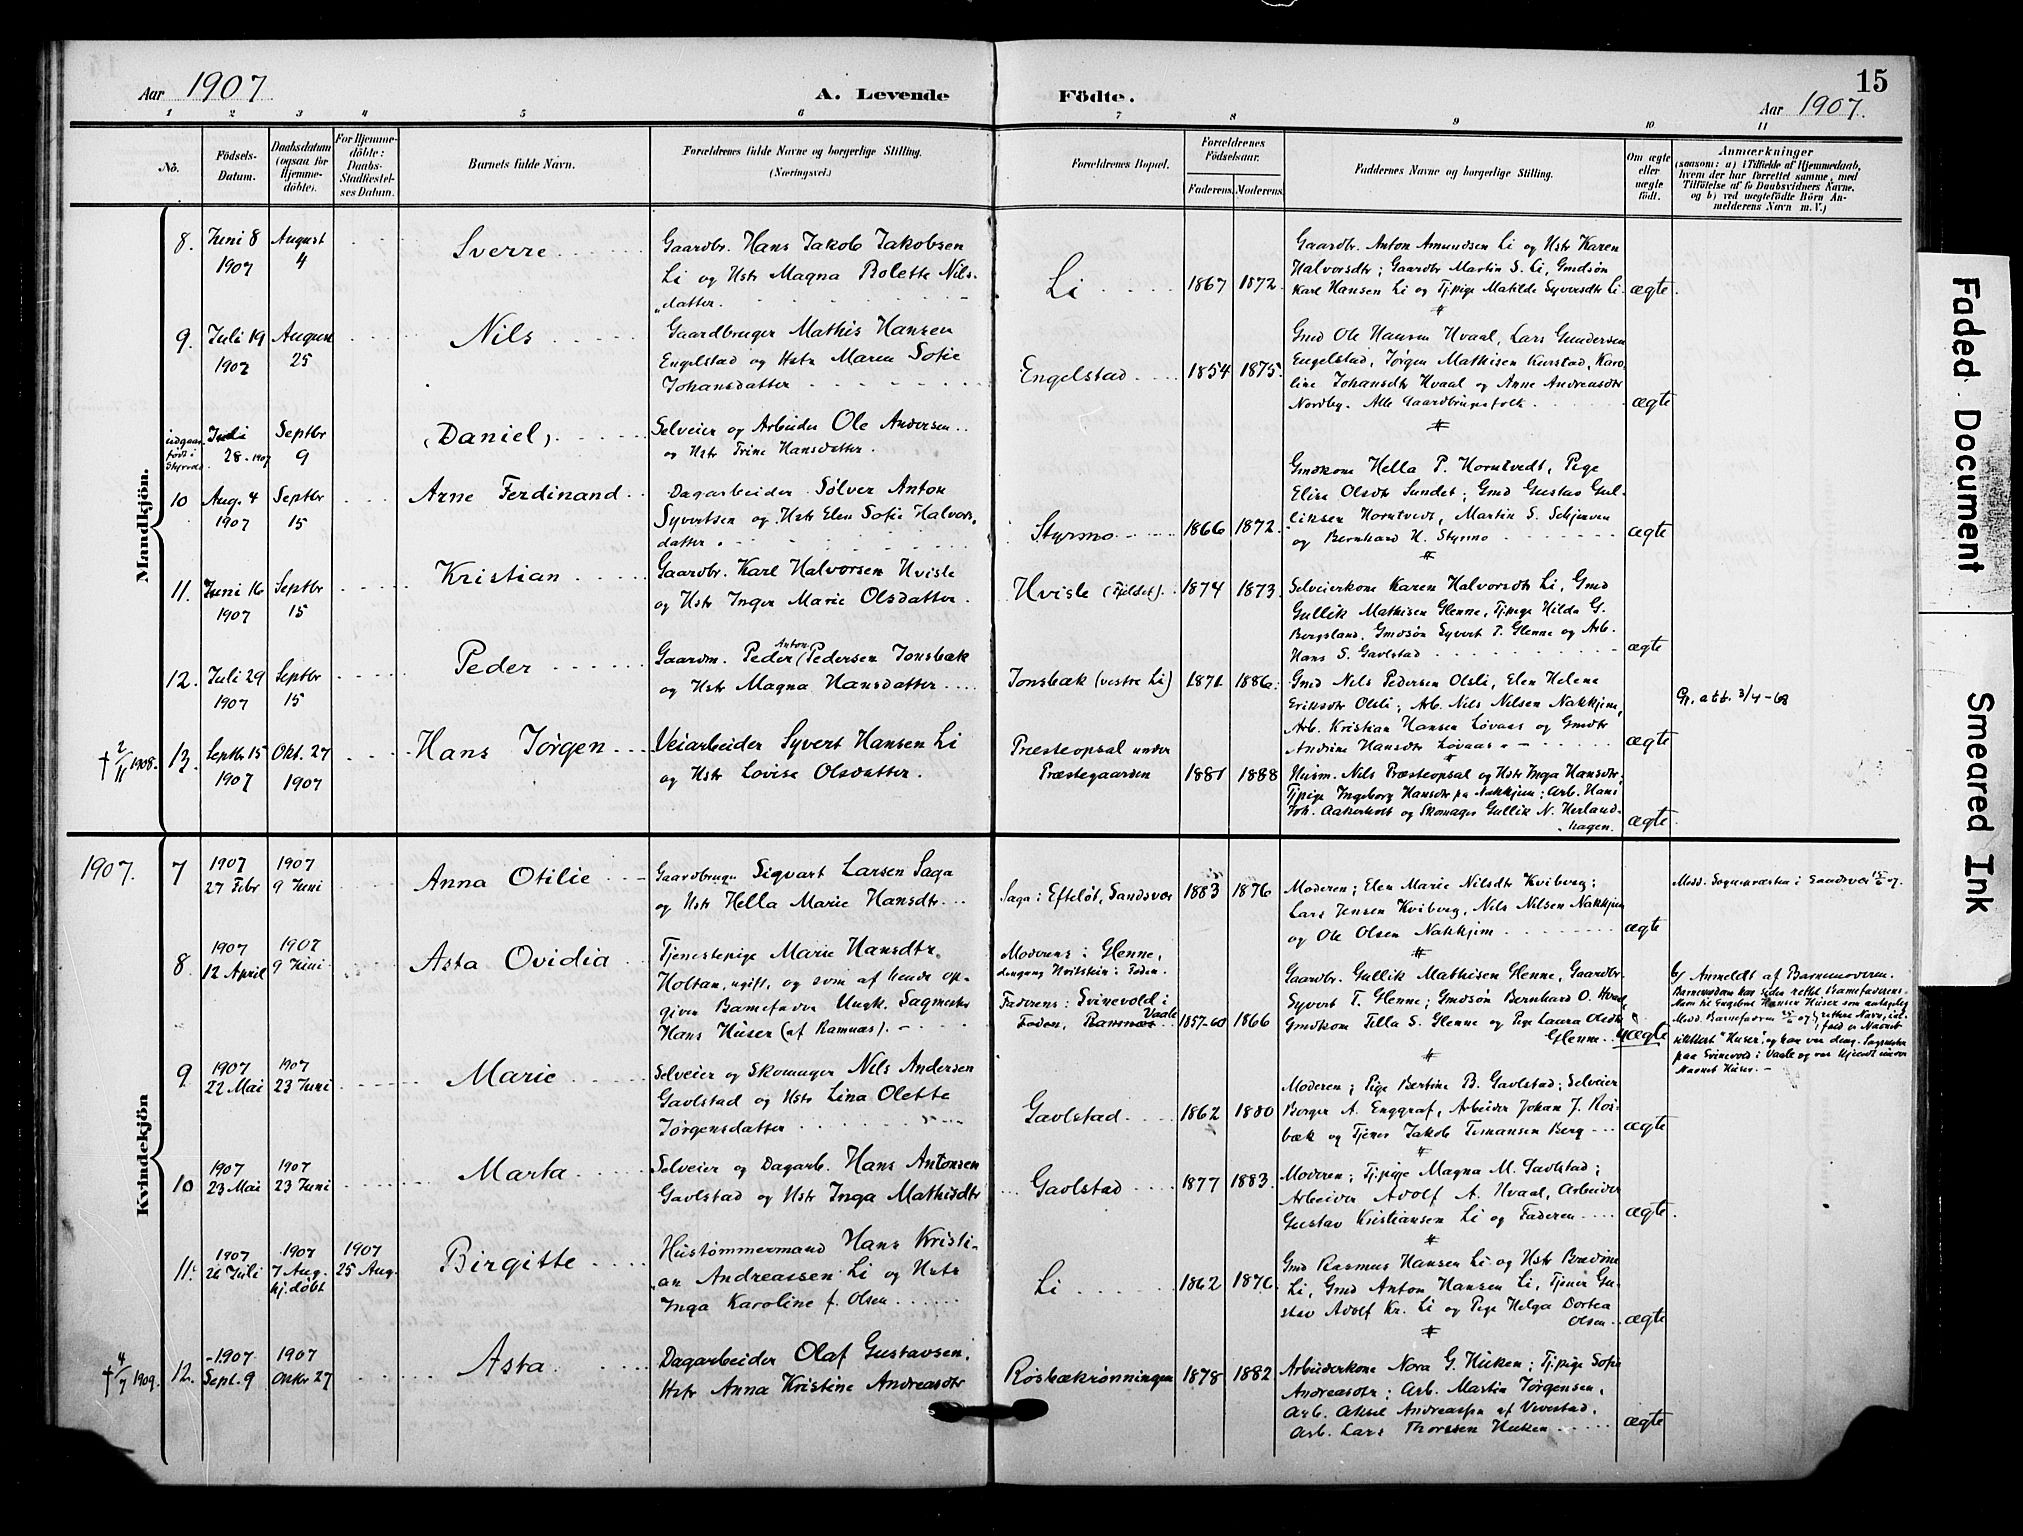 Aar 1907
A. Levende
Födte.
15
Aar 1907.
1 2 3 4 5 6 7 8 9 10 11
No.
Födsels-
Datum.
Daabsdatum
(ogsaa for
Hjemme-
döbte).
For Hjemme-
döbte:
Daabs-
Stadfæstel-
ses Datum.
Barnets fulde Navn.
Forældrenes fulde Navne og borgerlige Stilling.
(Næringsvei.)
Forældrenes Bopæl.
Forældrenes
Födselsaar.
Faderens. Moderens.
Faddernes Navne og borgerlige Stilling.
Om ægte
eller
uægte
födt.
Anmærkninger
(saasom: a) i Tilfælde af Hjemmedaab,
hvem der har forrettet samme, med
Tilföielse af to Daabsvidners Navne.
og b) ved uægtefödte Börn An-
melderens Navn m. V.)
Mandkjön.
8.
Juni 8
1907
August
4
Sverre
Gaardbr. Hans Jakob Jakobsen
Li og Hstr Magna Bolette Nils-
datter.
Li
1867 1872
Gaardbr. Anton Amundsen Li og Hstr Karen
Halvorsdtr; Gaardbr Martin S. Li, Gmdsøn
Karl Hansen Li og Tj.pige Matilde Syversdtr Li.
ægte
9.
Juli 19
1907
August
25
Nils
Gaardbruger Mathis Hansen
Engelstad og Hstr Maren Sofie
Johansdatter
Engelstad
1854 1875.
Gmd Ole Hansen Hvaal, Lars Gundersen
Engelstad, Jørgen Mathisen Kurstad, Karo-
line Johansdtr Hvaal og Anne Andreasdtr
Nordby. Alle Gaardbrugsfolk.
ægte
udgaar
født i
Juli
28-1907
Septbr
9
(Daniel)
Selveier og Arbeider Ole Andersen
og Hstr Trine Hansdatter.
10
Aug. 4
1907
Septbr
15
Arne Ferdinand
Dagarbeider Sølver Anton
Syvertsen og Hstr Elen Sofie Halvors-
datter.
Styrmo
1866 1872.
Gmdkone Hella P. Horntvedt, Pige
Elise Olsdtr Sundet; Gmd Gustav Gul-
liksen Horntvedt, Martin S. Schjerven
og Bernhard H. Styrmo
ægte
11.
Juni 16
1907
Septbr
15
Kristian
Gaardbr. Karl Halvorsen Hvisle
og Hstr Inger Marie Olsdatter.
Hvisle (Fjeldet).
1874 1873.
Selveierkone Karen Halvorsdtr Li, Gmd
Gullik Mathisen Glenne, Tj.pige Hilda G.
Bergsland, Gmdsøn Syvert T. Glenne og Arb.
Hans S. Gavlstad
ægte
12.
Juli 29
1907
Septbr
15
Peder
Anton
Gaardm. Peder (Pedersen Jonsbæk
og Hstr Magna Hansdatter
Jonsbæk (vestre Li)
1871 1886.
Gmd Nils Pedersen Olsli, Elen Helene
Eriksdtr Olsli; Arb. Nils Nilsen Nakkjem,
Arb. Kristian Hansen Løvaas og Gmdtr
Andrine Hansdtr Løvaas
ægte
Gr. att. 3/4-68
† 2/11 1908.
13.
Septbr 15
1907
Okt. 27
1907
Hans Jørgen
Veiarbeider Syvert Hansen Li
og Hstr Lovise Olsdatter.
Præsteopsal under
Præstegaarden
1881 1888
Husm. Nils Præsteopsal og Hstr Inga Hansdtr,
Tj.pige Ingeborg Hansdtr paa Nakkjem; Arb. Hans
Joh. Aakerholt og Skomager Gullik N. Herland-
hagen.
ægte
1907.
Kvindekjön
7
1907
27 Febr
1907
9 Juni
Anna Otilie
Gaardbruger Sigvart Larsen Saga
og Hstr Hella Marie Hansdtr
Saga i Efteløt, Sandsvær
1883 1876
Moderen; Elen Marie Nilsdtr Kviberg;
Lars Jensen Kviberg, Nils Nilsen Nakkjem
og Ole Olsen Nakkjem
ægte
Medd. Sognepræsten i Sandsvær 15/6 07.
8
1907
12 April
1907
9 Juni
Asta Ovidia
Tjenestepige Marie Hansdtr
Holtan, ugift, og som af hende op-
given Barnefader Ungk. Sagmester
Hans Hüser (af Ramnæs).
Moderens: Glenne,
Faderens: Svinevold i
Vaale
Foden, Ramnæs
1857-60 1866
Gaardbr. Gullik Mathisen Glenne, Gaardbr.
Syvert T. Glenne; Gmdsøn Bernhard O. Hvaal,
Gmdkone Tilla S. Glenne og Pige Laura Olsdtr
Glenne.
uægte
b) Anmeldt af Barnemoderen.
Barnemoderen har siden rettet Barnefaderens
Navn til Engebret Hansen Hüser som antagelig
Medd. Barnefaderen 25/6 07. rettere Navn, i al-
fald er Navnet
sikkert "Hüser", og han var deng. Sagmester
paa Svinevold i Vaale og var kjendt under
Navnet Hüser.
9
1907
22 Mai
1907
23 Juni
Marie
Selveier og Skomager Nils Andersen
Gavlstad og Hstr Lina Olette
Jørgensdatter
Gavlstad
1862 1880
Moderen; Pige Bertine B. Gavlstad; Selveier
Borger A. Enggraf, Arbeider Johan J. Røs-
bæk og Tjener Jakob Tomassen Berg
ægte
10
1907
23 Mai
1907
23 Juni
Marta
Selveier og Dagarb. Hans Antonsen
Gavlstad og Hstr Inga Mathisdtr
Gavlstad
1877 1883.
Moderen; Tj.pige Magna M. Gavlstad;
Arbeider Adolf A. Hvaal, Arbeider
Gustav Kristiansen Li og Faderen
ægte
11.
1907
26 Juli
1907
7 Aug.
hj.døbt
1907
25 Aug.
Birgitte
Hustømmermand Hans Kristi-
an Andreassen Li og Hstr
Inga Karoline f. Olsen
Li
1862 1876
Gmd Rasmus Hansen Li og Hstr Bredine
Li, Gmd Anton Hansen Li, Tjener Gu-
stav Adolf Kr. Li og Pige Helga Dortea
Olsen
ægte
† 4/7 1909.
12.
1907
Sept. 9
1907
Oktbr 27
Asta
Dagarbeider Olaf Gustavsen,
Hstr Anna Kristine Andreasdtr
Røsbækrønningen
1878 1882
Arbeiderkone Nora G. Huken; Tj.pige Sofie
Andreasdtr; Arb. Martin Jørgensen,
Arb. Aksel Andreassen af Vivestad,
Arb. Lars Thorssen Huken
ægte
Faded Document
Smeared Ink